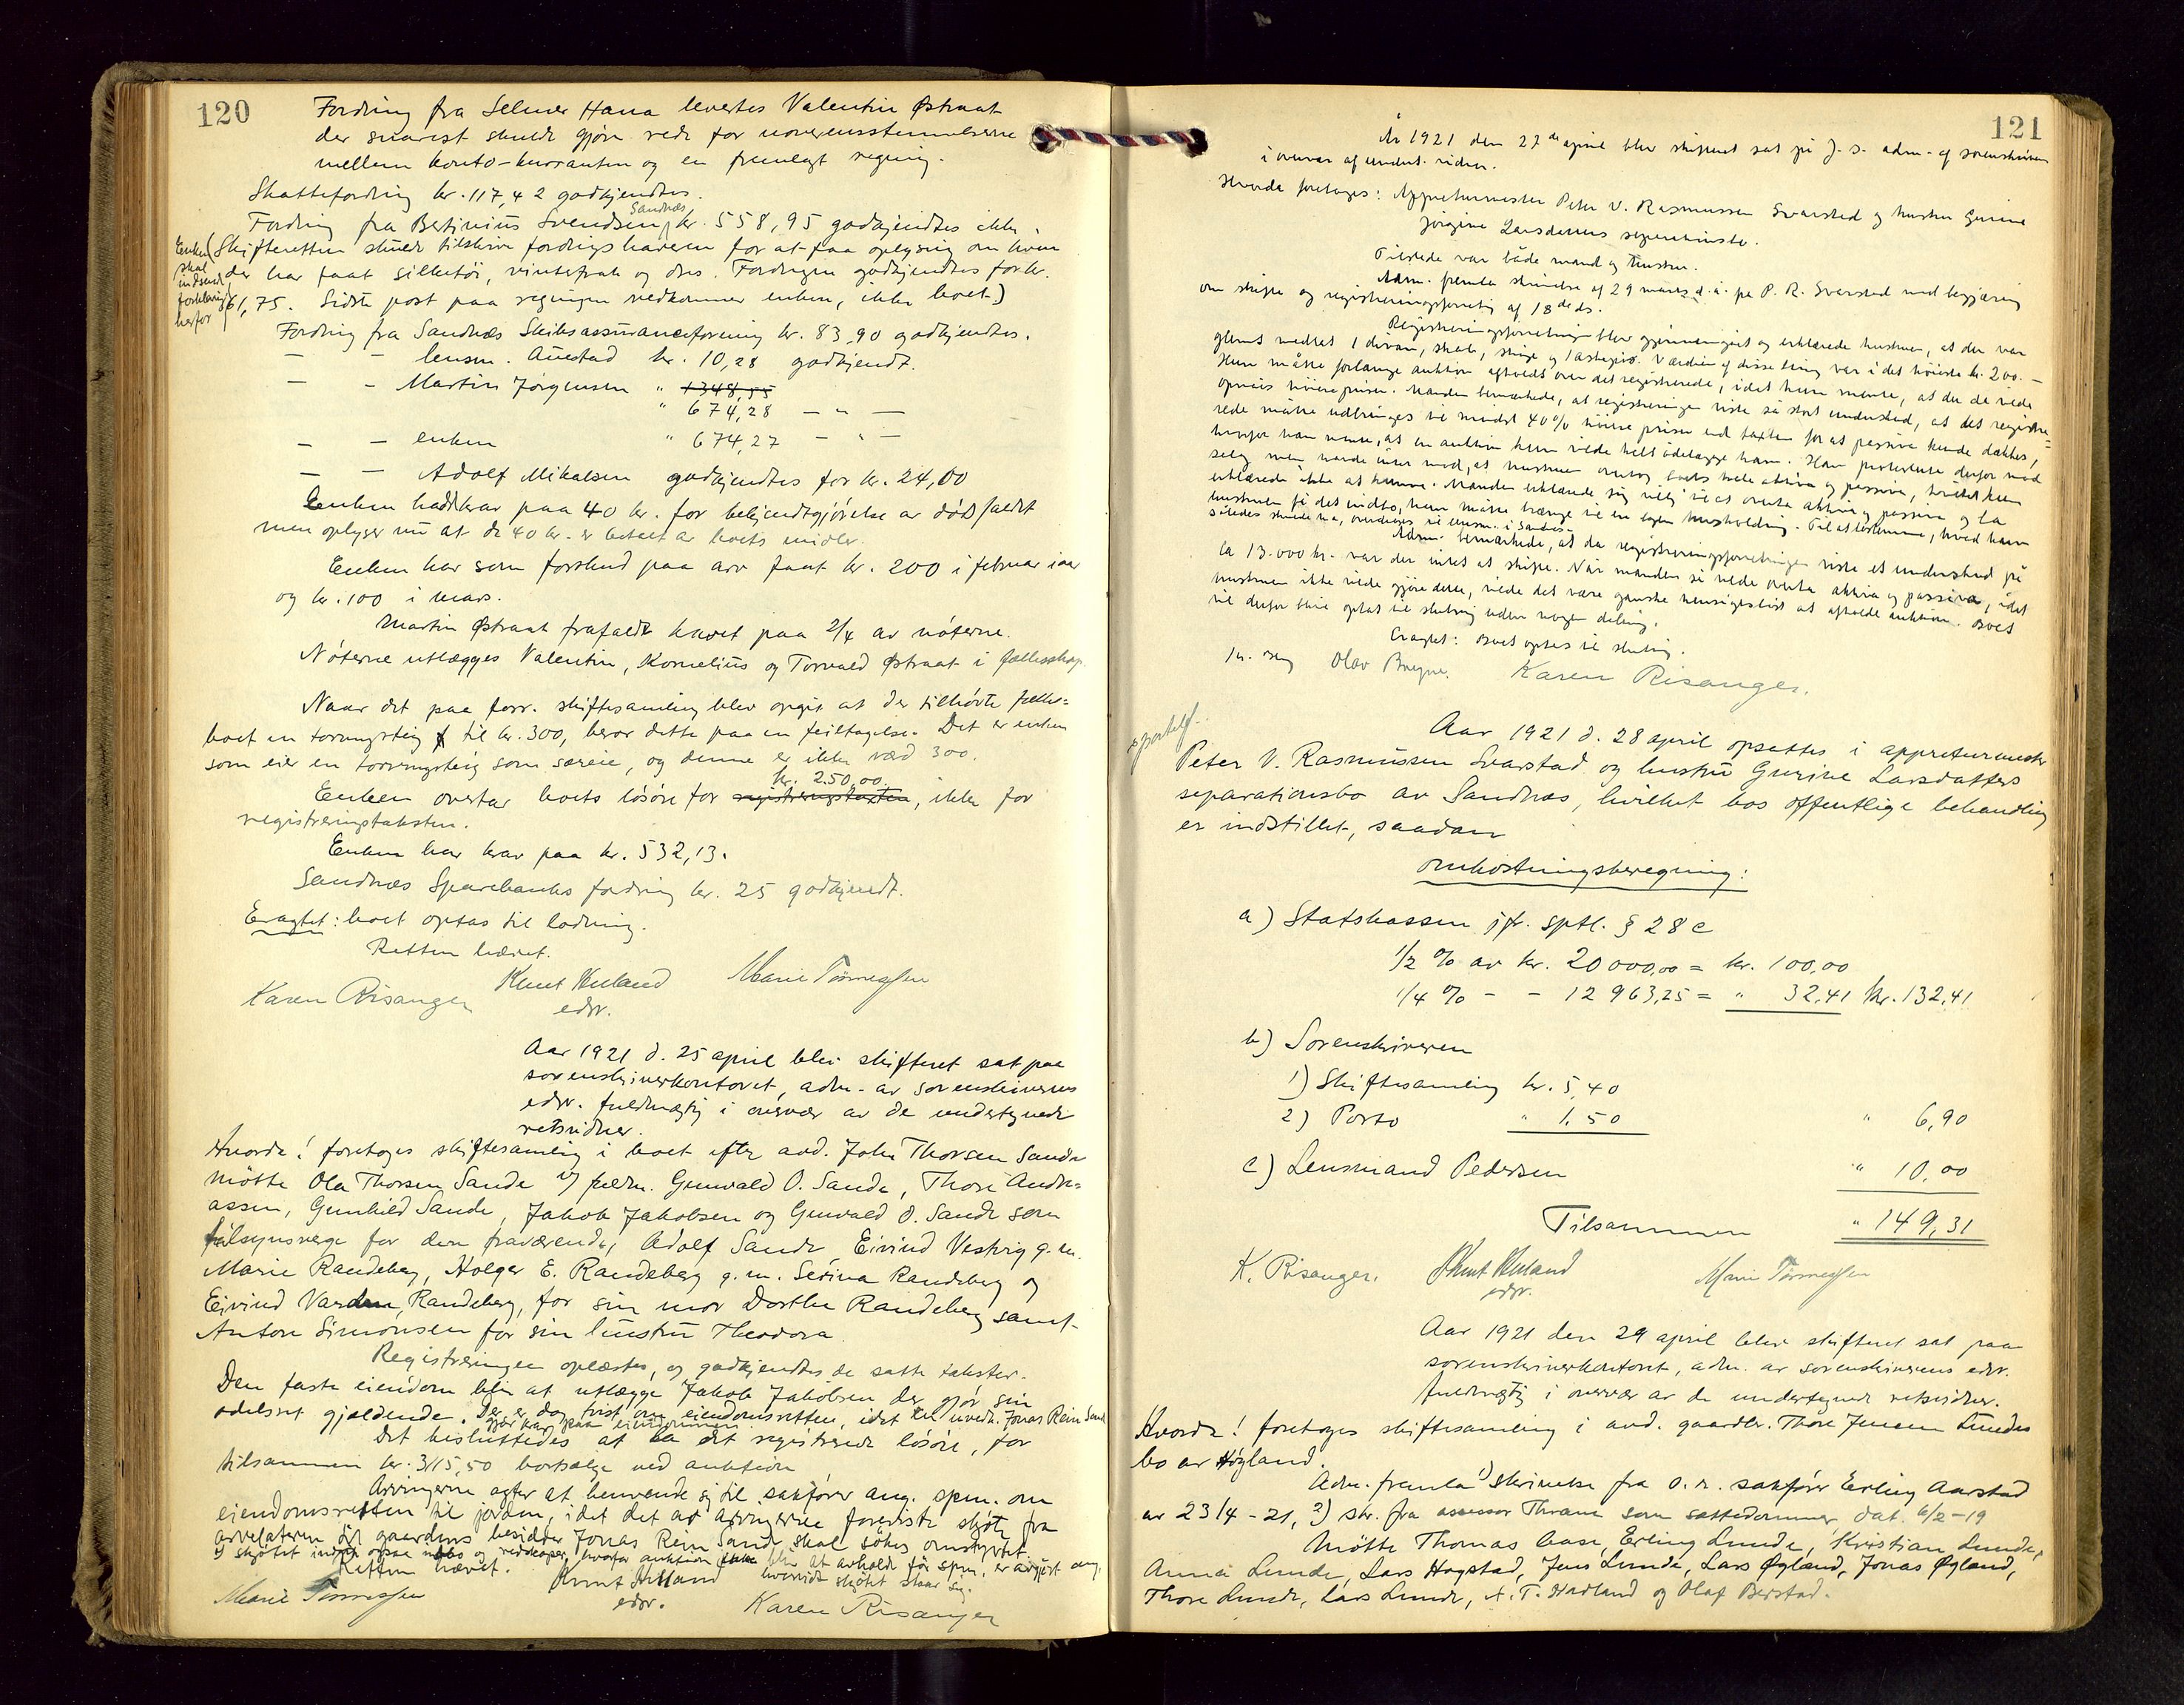 120
Fordring fra Selmer Hana levertes Valentin Østraat
der snarest skulde gjøre rede for uoverensstemmelserne
mellem konto-kurranten og en fremlagt regning.
Skattefordring kr. 117,42 godkjendtes.
Fordring fra Bertinius Svendsen, Sandnæs kr. 558,95 godkjendtes ikke.
(Skifteretten skulde tilskrive fordringshaveren for at faa oplysning om hvem
der har faat silketøi, vinterfrak og dres. Fordringen godkjendtes for kr.
61,75. Sidste post paa regningen vedkommer enken, ikke boet.)
Enken skal indsende forklaring herfor
Fordring fra Sandnæs Skibsassuranceforening kr. 83,90 godkjendtes.
— - lensm. Auestad kr. 10,28 godkjendt.
— - Martin Jørgensen " 1348,55
" 674,28 — " —
— — enken " 674,27 — " —
— — Adolf Mikalsen godkjendtes for kr. 24,00
Enken hadde krav paa 40 kr. for bekjendtgjørelse av dødsfaldet
men oplyser nu at de 40 kr. er betalt av boets midler.
Enken har som forskud paa arv faat kr. 200 i februar iaar
og kr. 100 i mars.
Martin Østraat frafaldt kravet paa 2/4 av nøterne.
Nøterne utlægges Valentin, Kornelius og Torvald Østraat i fællesskap.
Naar det paa forr. skiftesamling blev opgit at der tilhørte fælles-
boet en torvmyrteig til kr. 300, beror dette paa en feiltagelse. Det er enken
som eier en torvmyrteig som særeie, og denne er ikke værd 300.
Enken overtar boets løsøre for registreringstaxten kr. 250,00, ikke for
registreringstaksten.
Enken har krav paa kr. 532,13.
Sandnæs Sparebanks fordring kr. 25 godkjendt.
Eragtet: boet optas til lodning.
Retten hævet.
Karen Risanger Knut Huland Marie Tønnessen
edsv.
Aar 1921 d. 25 april blev skifteret sat paa
sorenskriverkontoret, adm. av sorenskriverens
edsv. fuldmægtig i overvær av de undertegnede
retsvidner.
Hvorda! foretoges skiftesamling i boet efter avd. John Thorsen Sande
Møtte Ola Thorsen Sande v/ fuldm. Gunvald O. Sande, Thore Andre-
assen, Gunhild Sande, Jakob Jakobsen og Gunvald O. Sande som
tilsynsverge for den fraværende, Adolf Sande, Eivind Vestvig g.m.
Marie Randeberg, Holger E. Randeberg g.m. Serina Randeberg og
Eivind Varden, Randeberg, for sin mor Dorthe Randeberg samt
Anton Simonsen for sin hustru Theodora.
Registreringen oplæstes, og godkjendtes de satte takster.
Den faste eiendom blir at utlægge Jakob Jakobsen der gjør sin
odelsret gjældende. Der er dog tvist om eiendomsretten, idet en nevø Jonas Rein Sande
gjør krav paa eiendommen.
Det besluttedes at la det registrerte løsøre, for
tilsammen kr. 3115,50 bortsælge ved auktion
Arvingerne agter at henvende sig til sakfører ang. spm. om
eiendomsretten til jorden, idet det av arvingerne foreviste skjøte fra
arvelateren til gaardens besidder Jonas Rein Sande skal søkes omstyrtet.
Retten hævet.
Marie Tønnessen Knut Huland Karen Risanger
edsv.
121
År 1921 den 27de april blev skifteret sat på J. s. adm. af sorenskriveren
i overvær af undert. vidner.
Hvorda foretoges: Appreturmester Peter V. Rasmussen Svarstad og hustru Gurine
Jørgine Larsdatters separationsbo.
Tilstede var både mand og hustru.
Adm. fremla skrivelse af 29 mars d.å. fra P. R. Svarstad med begjæring
om skifte og registreringsforretning af 18de ds.
Registreringsforretningen blev gjennemgået og erklærede hustruen, at der var
glemt medtat 1 divan, skab, stige og 1 . Værdien af disse ting var i det høieste kr. 200. —
Hun måtte forlange auktion afholdt over det registrerede, idet hun mente, at der da vilde
opnåes høiere priser. Manden bemærkede, at registreringen viste så stort underskud, at det registre-
rede måtte udbringes til mindst 40% høiere priser end taxten for at passiva kunde dækkes,
hvorfor han mente, at en auktion kun vilde helt ødelægge ham. Han protesterte derfor mod
salg men havde intet mod, at hustruen overtog boets hele aktiva og passiva, hvilket hun
erklærede ikke at kunne. Manden erklærede sig villig til at overta aktiva og passiva og la
hustruen få det indbo, hun måtte trænge til en egen husholdning. Til at bestemme, hvad hun
således skulde ha, overdroges til lensm. i Sandnes.
Adm. bemærkede, at da registreringsforretningen viste et underskud på
ca 13.000 kr. var der intet at skifte. Når manden så vilde overta aktiva og passiva, idet
hustruen ikke vilde gjøre dette, vilde det være ganske hensigtsløst at afholde auktion. Boet
vil derfor blive optat til slutning uden nogen deling.
Eragtet: Boet optas til slutning.
Olav Bryne. Karen Risanger.
Aar 1921 d. 28 april opsattes i appreturmester
Peter V. Rasmussen Svarstad og hustru Gurine Larsdatters
separationsbo av Sandnæs, hvilket bos offentlige behandling
er indstillet, saadan
omkostningsberegning:
a) Statskassen jfr. sptl. § 28 c
1/2 % av kr. 20 000,00 = kr. 100,00
1/4 % - - 12 963,25 = " 32,41 kr. 132,41
b) Sorenskriveren
1) Skiftesamling kr. 5,40
2) Porto " 1,50 " 6,90
c) Lensmand Pedersen " 10,00
Tilsammen " 149,31
K. Risanger. Knut Huland Marie Tønnessen
edsv.
Aar 1921 den 29 april blev skifteret sat paa
sorenskriverkontoret, adm. av sorenskriverens edsv.
fuldmægtig i overvær av de undertegnede retsvidner.
Hvorda! foretoges skiftesamling i avd. gaardbr. Thore Jensen Lundes
bo av Høgland.
Adm. fremla 1) skrivelse fra o.r. sakfører Erling Aarstad
av 23/4 - 21, 2) skr. fra assessor Thrane som sættedommer, dat. 6/2 - 19
Møtte Thomas Aase, Erling Lunde, Kristian Lunde,
Anna Lunde, Lars Hogstad, Jens Lunde, Lars Øgland, Jonas Øgland,
Thore Lunde, Lars Lunde, A. T. Hadland og Olaf Berstad.